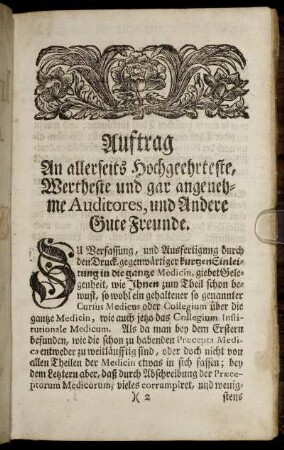 Auftrag
An allerseits Hochgeehrteste,
Wertheste und gar angeneh-
me Auditores, und Andere
Gute Freunde.
ZU Verfassung, und Ausfertigung durch
den Druck gegenwärtiger kurtzen Einlei-
tung in die gantze Medicin, giebet Gele-
genheit, wie Ihnen zum Theil schon be-
wust, so wohl ein gehaltener so genannter
Cursus Medicus oder Collegium über die
gantze Medicin, wie auch jetzo das Collegium Insti-
tutionale Medicum. Als da man bey dem Erstern
befunden, wie die schon zu habenden Præcepta Medi-
ca entweder zu weitläufftig sind, oder doch nicht von
allen Theilen der Medicin etwas in sich fassen; bey
dem Letztern aber, daß durch Abschreibung der Præce-
ptorum Medicorum, vieles corrumpiret, und wenig-
)( 2 stens